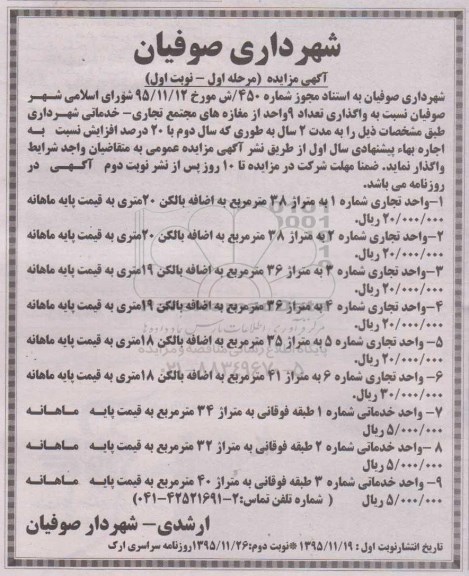 شهرداری صوفیان
آگهی مزایده (مرحله اول - نوبت اول)
شهرداری صوفیان به استناد مجوز شماره ۴۵۰/ش مورخ ۹۵/۱۱/۱۲ شورای اسلامی شهر
صوفیان نسبت به واگذاری تعداد ۹واحد از مغازه های مجتمع تجاری- خدماتی شهرداری
طبق مشخصات ذیل را به مدت ۲ سال به طوری که سال دوم با ۲۰ درصد افزایش نسبت به
اجاره بهاء پیشنهادی سال اول از طریق نشر آگهی مزایده عمومی به متقاضیان واجد شرایط
واگذار نماید. ضمنا مهلت شرکت در مزایده تا ۱۰ روز پس از نشر نوبت دوم آگهی در
روزنامه می باشد.
۱-واحد تجاری شماره ۱ به متراژ ۳۸ مترمربع به اضافه بالکن ۲۰متری به قیمت پایه ماهانه
۲۰/۰۰۰/۰۰۰ ریال.
۲-واحد تجاری شماره ۲ به متراژ ۳۸ مترمربع به اضافه بالکن ۲۰متری به قیمت پایه ماهانه
۲۰/۰۰۰/۰۰۰ ریال.
۳-واحد تجاری شماره ۳ به متراژ ۳۶ مترمربع به اضافه بالکن ۱۹متری به قیمت پایه ماهانه
۲۰/۰۰۰/۰۰۰ ریال.
۴-واحد تجاری شماره ۴ به متراژ ۳۶ مترمربع به اضافه بالکن ۱۹متری به قیمت پایه ماهانه
۲۰/۰۰۰/۰۰۰ ریال.
۵- واحد تجاری شماره ۵ به متراژ ۳۵ مترمربع به اضافه بالکن ۱۸متری به قیمت پایه ماهانه
۲۰/۰۰۰/۰۰۰ ریال.
۶- واحد تجاری شماره ۶ به متراژ ۴۱ مترمربع به اضافه بالکن ۱۸متری به قیمت پایه ماهانه
۳۰/۰۰۰/۰۰۰ ریال.
۷- واحد خدماتی شماره ۱ طبقه فوقانی به متراژ ۳۴ مترمربع به قیمت پایه ماهانه
۵/۰۰۰/۰۰۰ ریال
۸ -واحد خدماتی شماره ۲ طبقه فوقانی به متراژ ۳۲ مترمربع به قیمت پایه ماهانه
۵/۰۰۰/۰۰۰ ریال
۹- واحد خدماتی شماره ۳ طبقه فوقانی به متراژ ۴۰ مترمربع به قیمت پایه ماهانه
۵/۰۰۰/۰۰۰ ریال ( شماره تلفن تماس:۲-۴۲۵۲۱۶۹۱-۰۴۱)
ارشدی- شهردار صوفیان
تاریخ انتشارنوبت اول : ۱۳۹۵/۱۱/۱۹ *نوبت دوم:۱۳۹۵/۱۱/۲۶روزنامه سراسری ارک